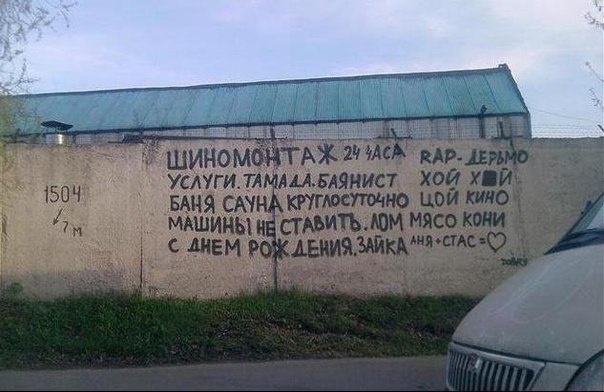 ШИНОМОНТАЖ 24 ЧАСА RAP-ДЕРЬМО
УСЛУГИ. ТАМАДА. БАЯНИСТ ХОЙ ХОЙ
БАНЯ САУНА КРУГЛОСУТОЧНО ЦОЙ КИНО
МАШИНЫ НЕ СТАВИТЬ. ЛОМ МЯСО КОНИ
С ДНЕМ РОЖДЕНИЯ, ЗАЙКА АНЯ+СТАС=♡
1504
7 м